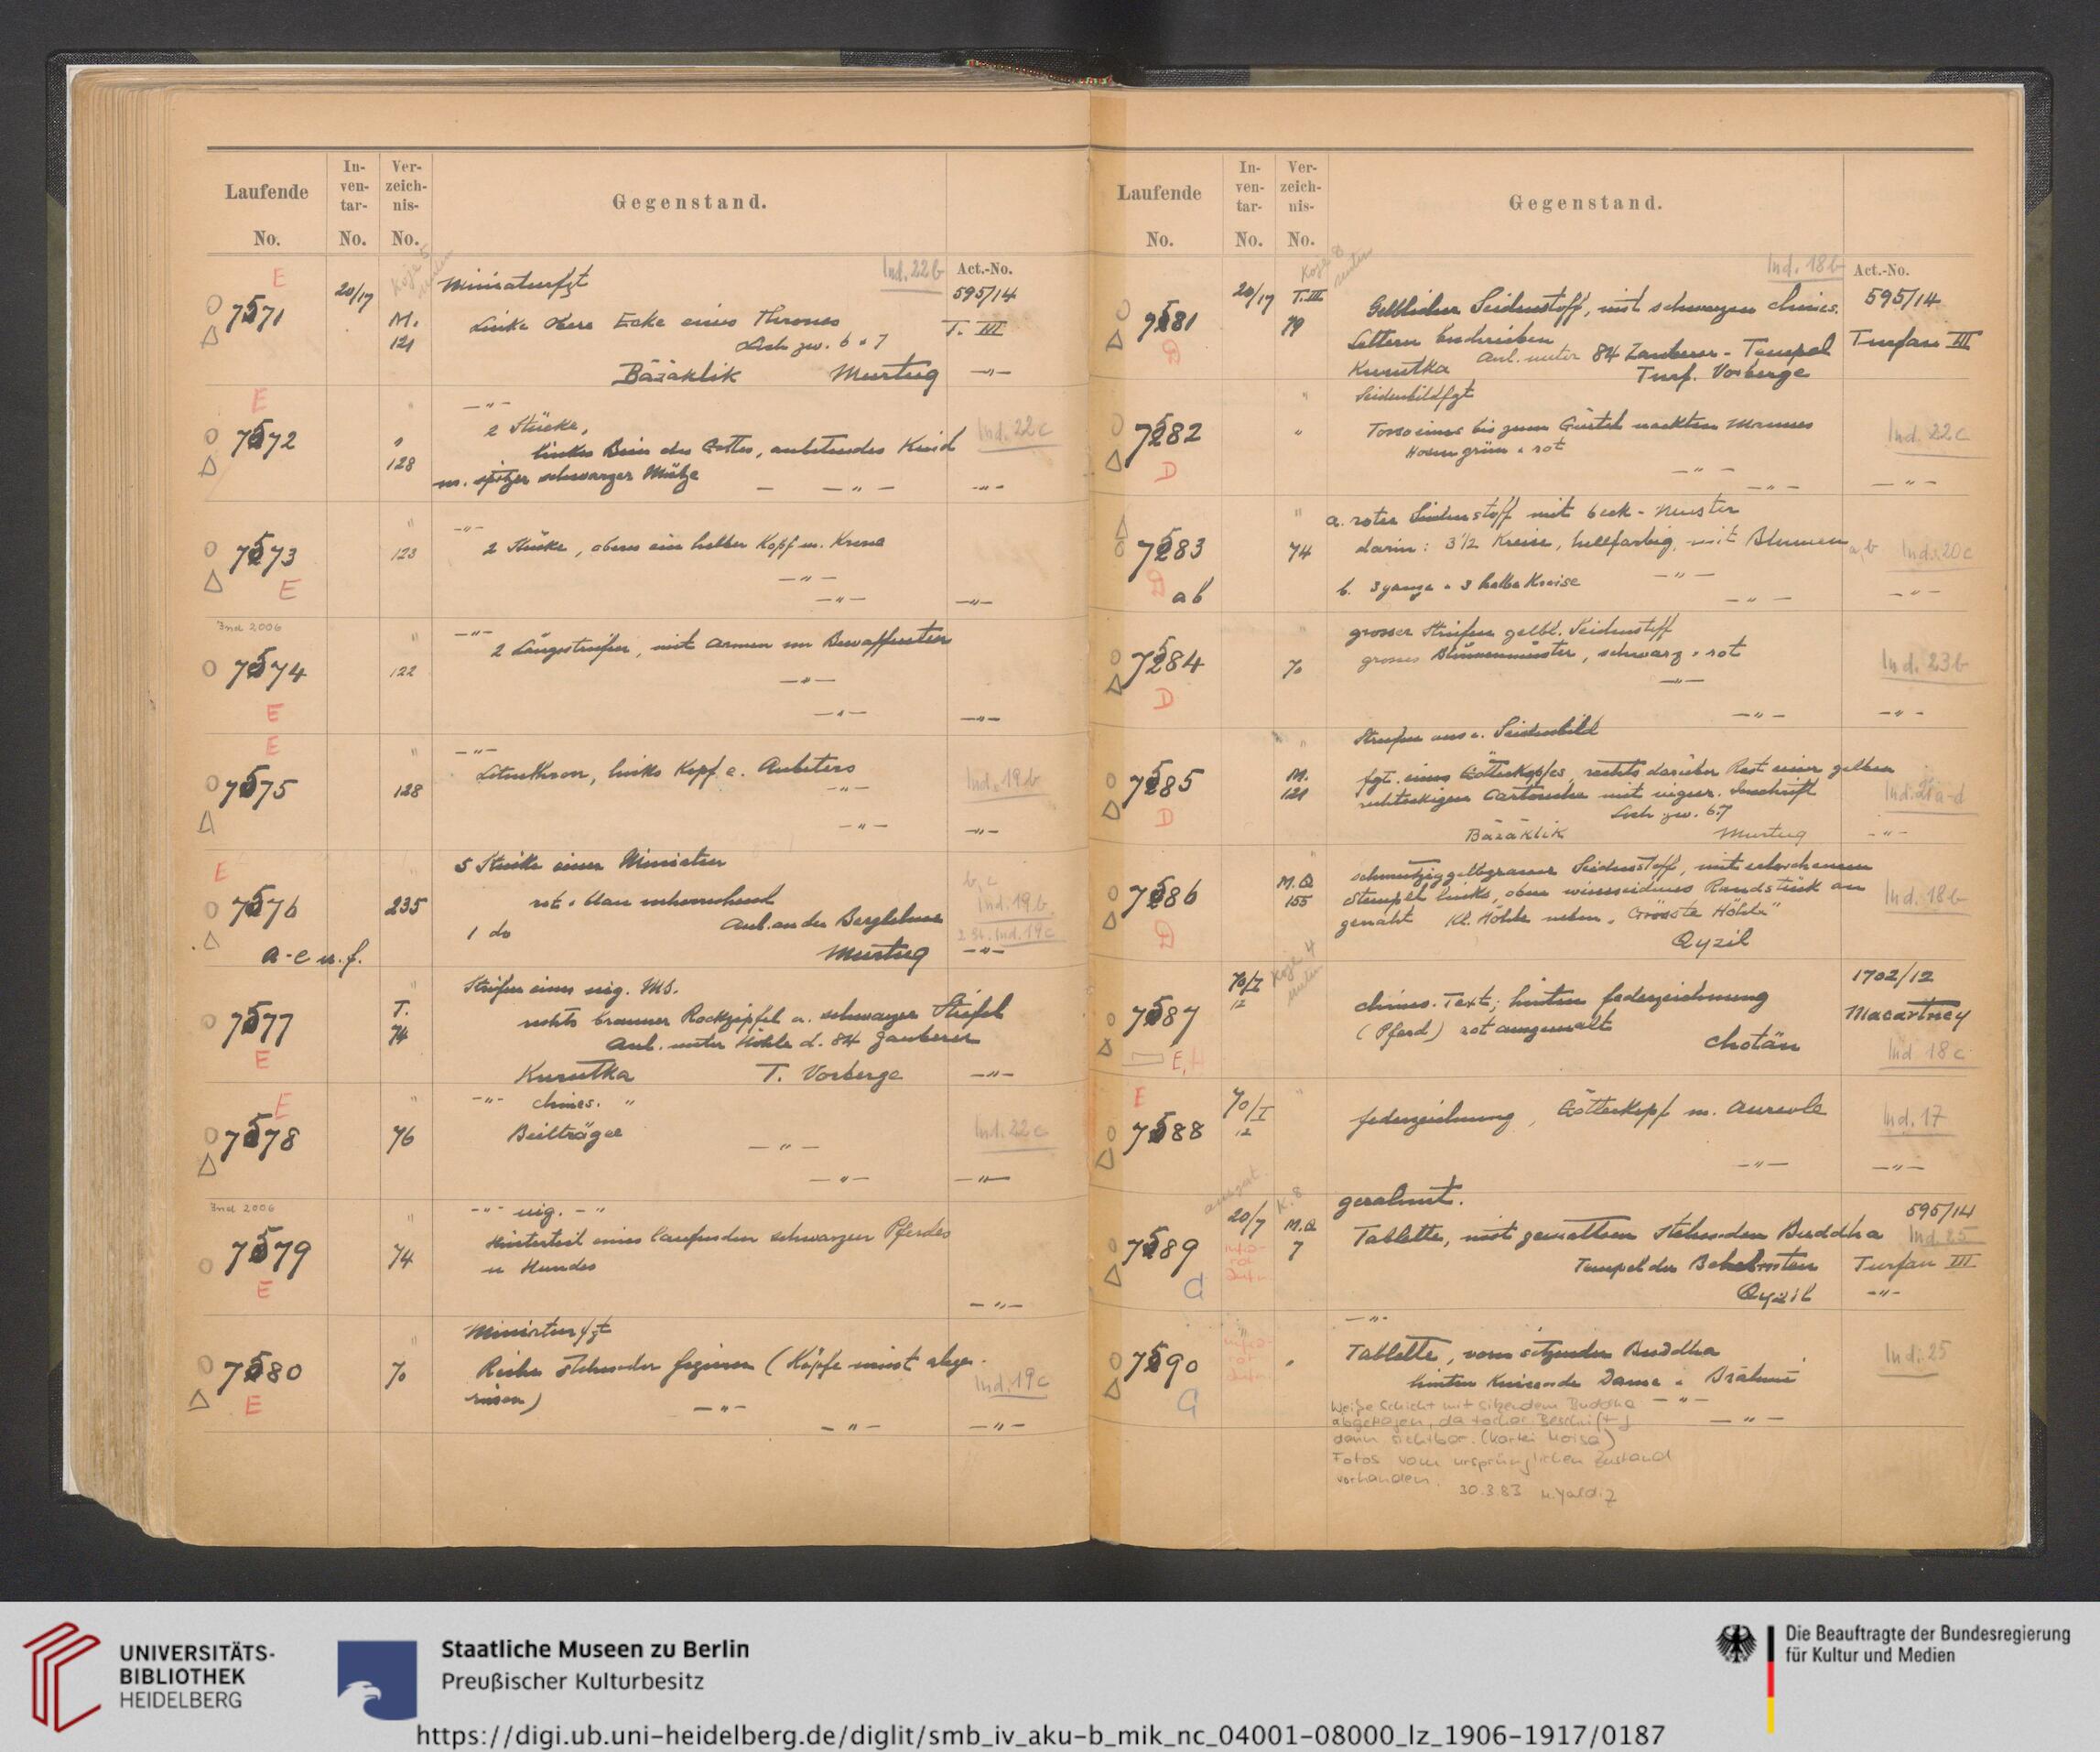 Laufende
No.
In-
ven-
tar-
No.
Ver-
zeich-
nis-
No.
Gegenstand.
Act.-No.
E
7571
20/17
M.
121
Miniaturfgt
Ind. 22b
595/14
Linke obere Ecke eines Thrones
T. III
Sch zw. 6 + 7
Bäzäklik Murtuq —"—
E
7572
"
128
—"—
2 Stücke,
linkes Bein des Gottes, anbetendes Kind
Ind. 22c
m. spitzer schwarzer Mütze — —"— —"—
7573
E
"
123
—"—
2 Stücke, oben ein halber Kopf m. Krone
—"—
—"— —"—
Ind 2006
7574
E
"
122
—"—
2 Längsstreifen, mit Armen von Bewaffneten
—"—
—"— —"—
E
7575
"
128
—"—
Lotusthron, links Kopf e. Anbeters
—"—
Ind. 19b
—"— —"—
E
7576
a-e u. f.
"
235
5 Stücke einer Miniatur
rot + blau vorherrschend
b, c
Ind. 19b
1 do Anl. an der Berglehne
2 St. Ind. 19c
Murtuq —"—
7577
E
"
T.
74
Streifen eines uig. MS.
rechts brauner Rockzipfel u. schwarzer Stiefel
Anl. unter Höhle d. 84 Zauberer
Kurutka T. Vorberge —"—
E
7578
"
76
—"— chines. "
Beilträger
—"—
Ind. 22c
—"— —"—
Ind 2006
7579
E
"
74
—"— uig. —"
Hinterteil eines laufenden schwarzen Pferdes
u Hundes
—"—
7580
E
"
70
Miniaturfgt
Reihe stehender Figuren (Köpfe meist abge-
rissen)
Ind. 19c
—"—
—"— —"—
Laufende
No.
In-
ven-
tar-
No.
Ver-
zeich-
nis-
No.
Gegenstand.
Act.-No.
7581
D
20/17
T. III
79
Koje 8
unten
Ind. 18b
Gelblicher Seidenstoff, mit schwarzen chines.
595/14
Lettern beschrieben
Anl. unter 84 Zauberer-Tempel
Turfan III
Kurutka Turf. Vorberge
7582
D
"
"
Seidenbildfgt
Torso eines bis zum Gürtel nackten Mannes
Hosen grün + rot
Ind. 22c
—"—
—"— —"—
7583
D
ab
"
74
a. roter Seidenstoff mit 6eck-Muster
darin: 3 1/2 Kreise, hellfarbig, mit Blumen
a, b Ind. 20c
b. 3 ganze + 3 halbe Kreise —"—
—"— —"—
7584
D
"
70
grosser Streifen gelbl. Seidenstoff
grosses Blumenmuster, schwarz + rot
Ind. 23b
—"—
—"— —"—
7585
D
"
M.
121
Streifen aus e. Seidenbild
fgt. eines Götterkopfes, rechts darüber Rest einer gelben
rechteckigen Cartouche mit uigur. Inschrift
Sch zw. 6.7
Ind. 21a-d
Bäzäklik Murtuq —"—
7586
D
"
M.Q
155
schmutziggelbgrauer Seidenstoff, mit erloschenem
Stempel links, oben weissseidenes Rundstück an
genäht Kl. Höhle neben „Grösste Höhle"
Ind. 18b
Qyzil
7587
E, H
70/I
12
Koje 4
unten
1702/12
chines. Text; hinten Federzeichnung
(Pferd) rot ausgemalt
Macartney
Chotän
Ind 18c
E
7588
70/I
12
"
Federzeichnung, Götterkopf m. Aureole
Ind. 17
—"— —"—
7589
G
20/7
K. 8
M.Q
7
gerahmt.
595/14
Tablette, mit gemaltem stehenden Buddha
Ind. 25
Tempel der Behelmten
Turfan III
Qyzil —"—
7590
G
"
"
—"—
Tablette, vorn sitzender Buddha
hinten Knieende Dame + Brāhmī
Ind. 25
—"—
—"—
Weiße Schicht mit sitzendem Buddha
abgezogen, da tochar. Beschrift.
dann sichtbar. (Kartei Moisa)
Fotos vom ursprünglichen Zustand
vorhanden.
30.3.83 M. Yaldiz
UNIVERSITÄTS-
BIBLIOTHEK
HEIDELBERG
Staatliche Museen zu Berlin
Preußischer Kulturbesitz
Die Beauftragte der Bundesregierung
für Kultur und Medien
https://digi.ub.uni-heidelberg.de/diglit/smb_iv_aku-b_mik_nc_04001-08000_lz_1906-1917/0187